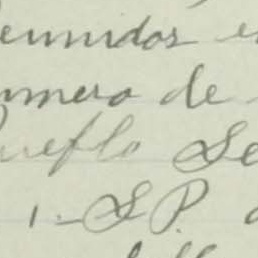 eunidos e
umero de
Pueflo Se
1.- S.P.